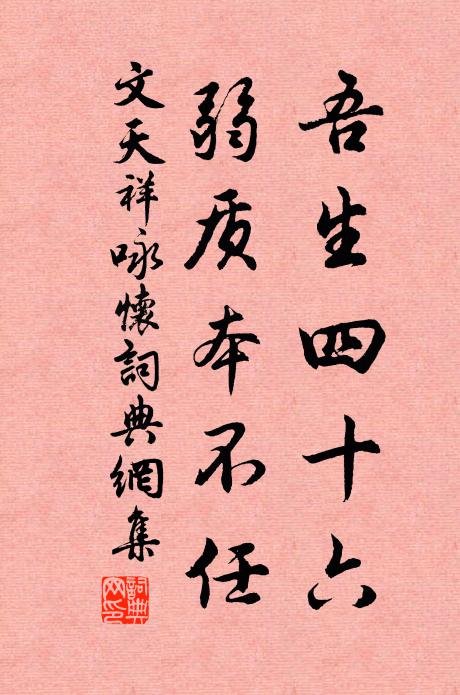 吾生四十六
弱质本不任
文天祥咏懷詞典網集
詞典
网印